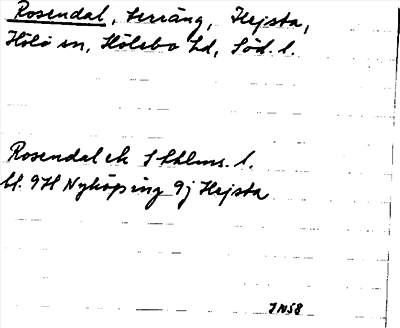 Rosendal, terräng, Hejsta,
Hölö sn, Hölebo hd, Söd. l.
Rosendal ek Sthlms. l.
bl. 9H Nyköping 9j Hejsta
IN58